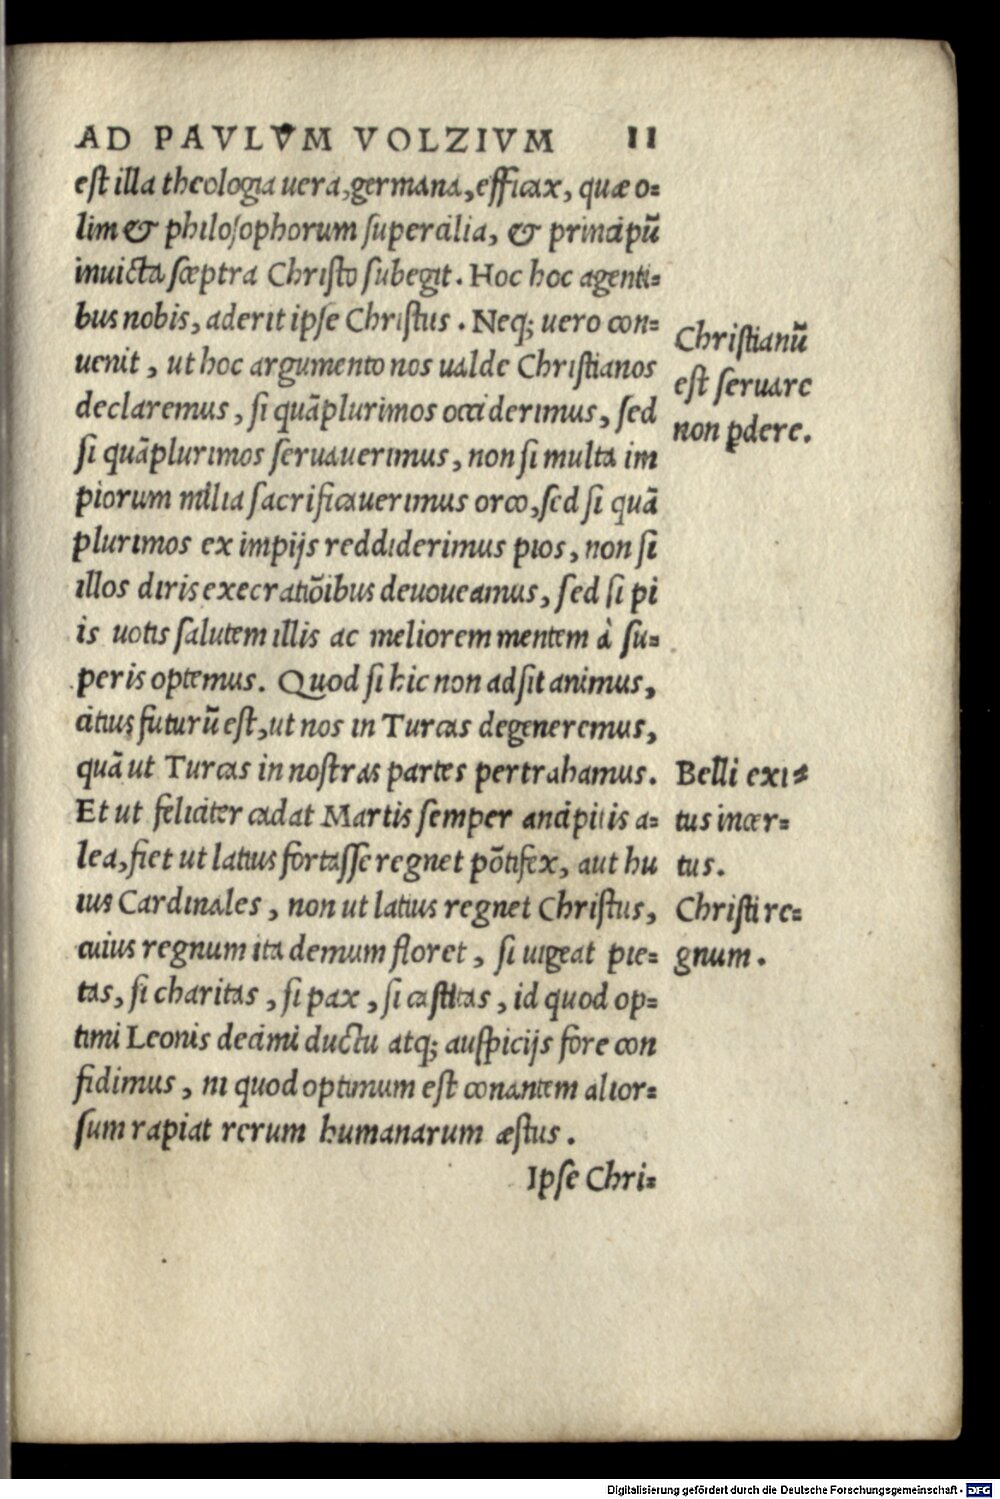 AD PAVLVM VOLZIVM 11
est illa theologia uera, germana, efficax, quæ o=
lim & philosophorum supercilia, & principũ
inuicta sceptra Christo subegit. Hoc hoc agenti=
bus nobis, aderit ipse Christus. Neq; uero con=
uenit, ut hoc argumento nos ualde Christianos
declaremus, si quãplurimos occiderimus, sed
si quãplurimos seruauerimus, non si multa im
piorum milia sacrificauerimus orco, sed si quã
plurimos ex impijs reddiderimus pios, non si
illos diris execratiõibus deuoueamus, sed si pi
is uotis salutem illis ac meliorem mentem à su=
peris optemus. Quod si hic non adsit animus,
citius futurũ est, ut nos in Turcas degeneremus,
quã ut Turcas in nostras partes pertrahamus.
Et ut feliciter cadat Martis semper ancipitis a=
lea, fiet ut latius fortasse regnet põtifex, aut hu
ius Cardinales, non ut latius regnet Christus,
cuius regnum ita demum floret, si uigeat pie=
tas, si charitas, si pax, si castitas, id quod op=
timi Leonis decimi ductu atq; auspicijs fore con
fidimus, ni quod optimum est conantem alior=
sum rapiat rerum humanarum æstus.
Ipse Chri=
Christianũ
est seruare
non ꝑdere.
Belli exi=
tus incer=
tus.
Christi re=
gnum.
Digitalisierung gefördert durch die Deutsche Forschungsgemeinschaft - DFG